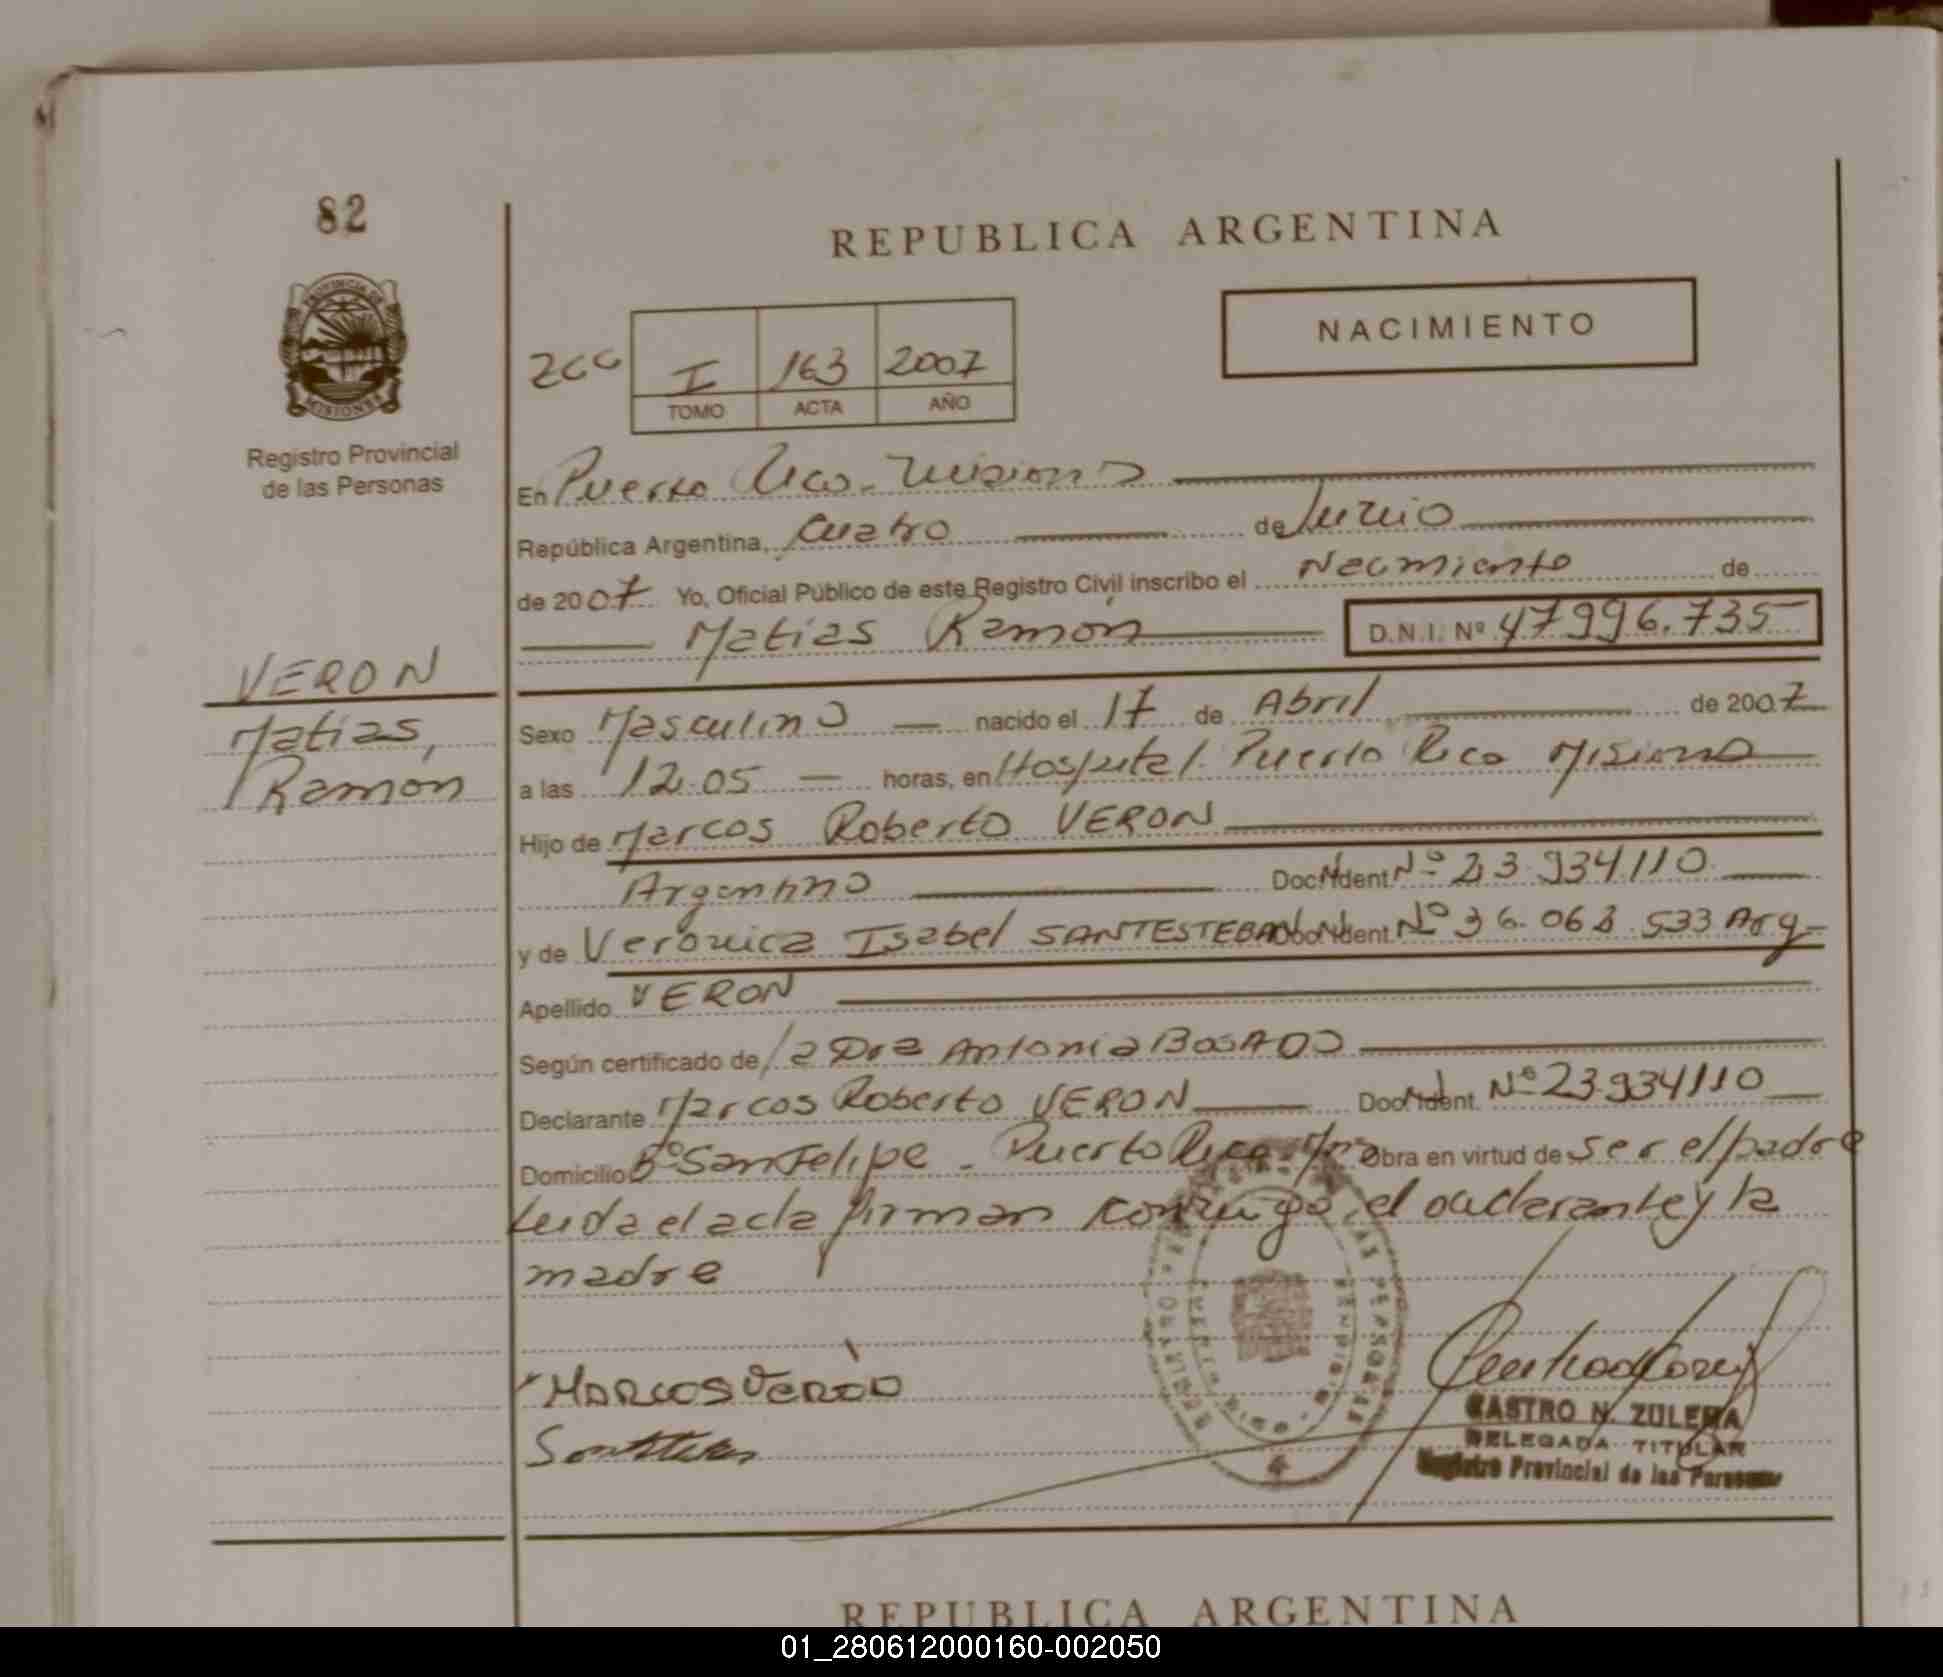 82
REPUBLICA ARGENTINA
NACIMIENTO
I 163 2007
TOMO ACTA AÑO
PROVINCIA DE
MISIONES
Registro Provincial
de las Personas
En Puerto Rico - Misiones
República Argentina, Cuatro de Junio
de 2007 Yo, Oficial Público de este Registro Civil inscribo el Nacimiento de
Matias Ramón D.N.I. Nº 47996.735
VERON
Matias,
Ramón
Sexo Masculino nacido el 17 de Abril de 2007
a las 12.05 horas, en Hospital Puerto Rico Misiones
Hijo de Marcos Roberto VERON
Argentino Doc. Ident. Nº 23.934110
y de Verónica Isabel SANTESTEBAN Doc. Ident. Nº 36.063.533 Arg
Apellido VERON
Según certificado de la Dra Antonia
Declarante Marcos Roberto VERON Doc. Ident. Nº 23.934110
Domicilio Bº San Felipe - Puerto Rico Mnes Obra en virtud de ser el padre
Leida el acta firman conmigo el declarante y la
madre
MARCOS VERON
CASTRO N. ZULEMA
DELEGADA TITULAR
Registro Provincial de las Personas
REPUBLICA ARGENTINA
01_280612000160-002050